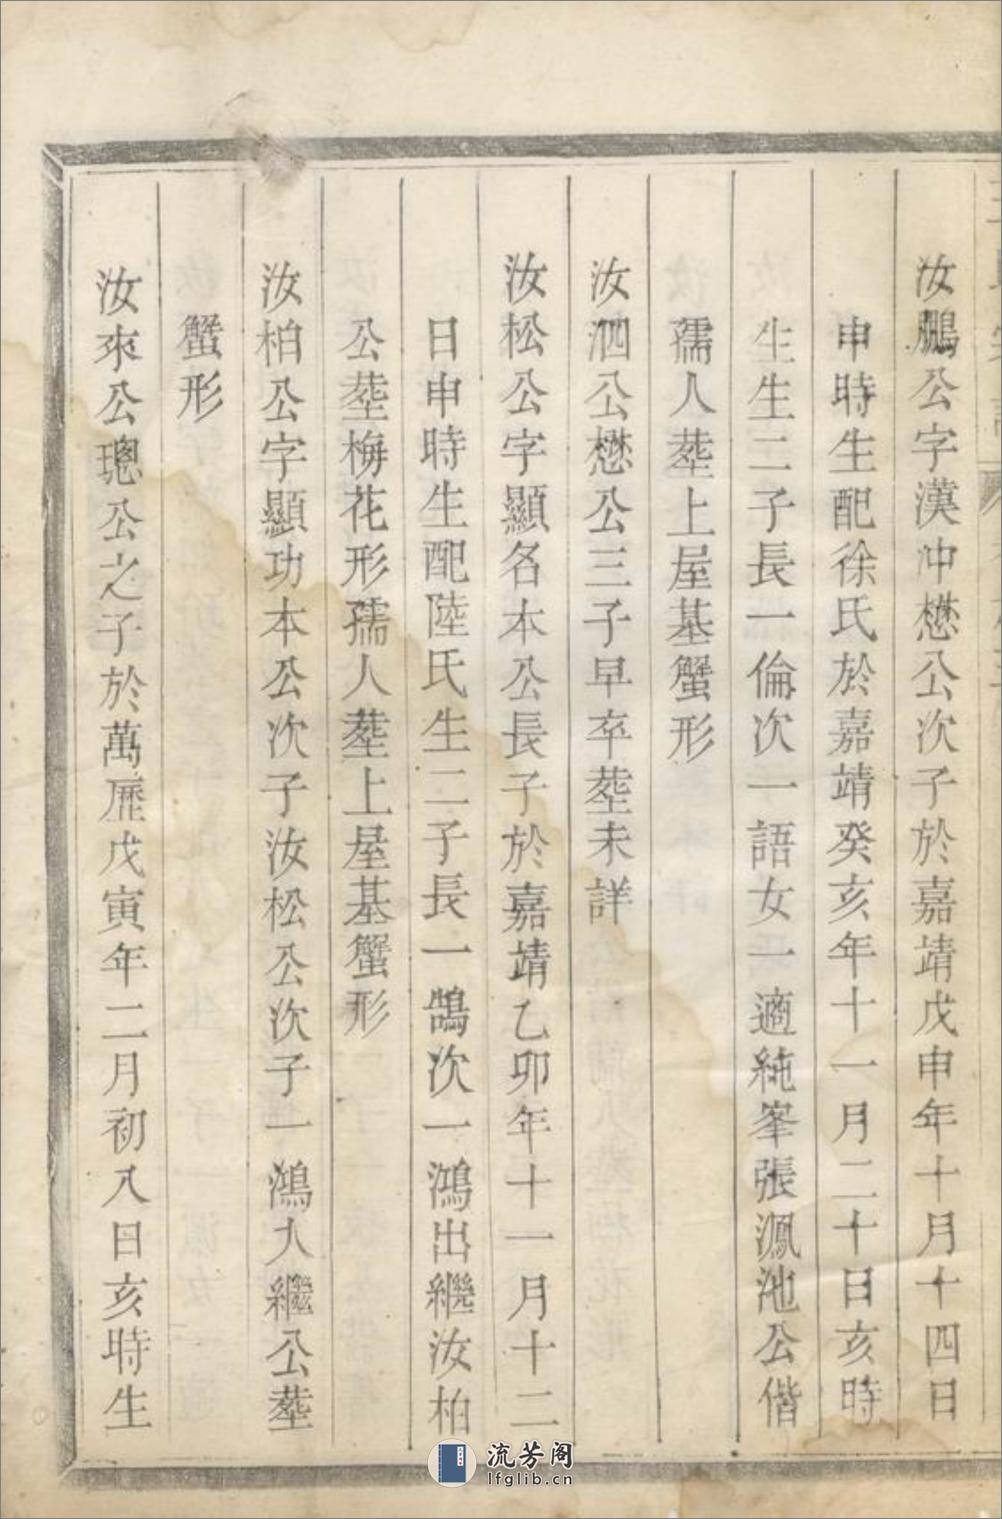 汝鵬公字漢冲懋公次子於嘉靖戊申年十月十四日
申時生配徐氏於嘉靖癸亥年十一月二十日亥時
生生二子長一倫次一語女一適純峯張鳳池公偕
孺人塟上屋基蟹形
汝泗公懋公三子早卒塟未詳
汝松公字顯名本公長子於嘉靖乙卯年十一月十二
日申時生配陸氏生二子長一鵠次一鴻出繼汝柏
公塟梅花形孺人塟上屋基蟹形
汝柏公字顯功本公次子汝松公次子一鴻入繼公塟
蟹形
汝來公璁公之子於萬厯戊寅年二月初八日亥時生
流芳阁
lfglib.cn